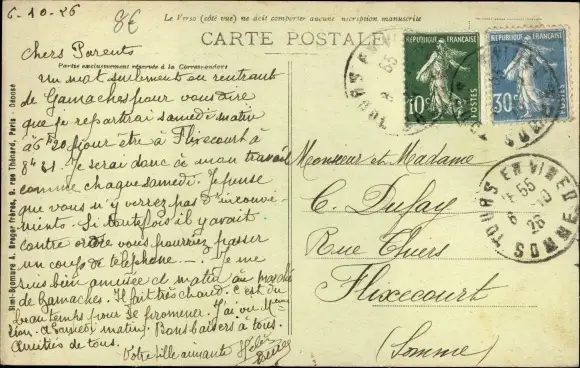 6-10-26
8€
Le Verso (côté vue) ne doit comporter aucune inscription manuscrite
CARTE POSTALE
Partie exclusivement réservée à la Correspondance
Chers Parents
Un mot seulement en rentrant
de Gamaches pour vous dire
que je repartirai samedi matin
à 6h20 pour être à Flixecourt à
8h21. Je serai donc à mon travail
comme chaque samedi. Je pense
que vous n'y verrez pas d'inconvé-
nients. Si toutefois il y avait
contre ordre vous pourriez passer
un coup de téléphone. Je me
suis bien amusée ce matin au marché
de Gamaches. Il fait très chaud. C'est du
beau temps pour se promener. J'ai vu
A Samedi matin. Bons baisers à tous.
Amitiés de tous.
Votre fille aimante
Simi-Bromure A. Breger frères, 9, rue Thénard, Paris
RÉPUBLIQUE FRANÇAISE
10c
POSTES
RÉPUBLIQUE FRANÇAISE
30c
POSTES
TOURS EN VIMEU
SOMME
55
26
Monsieur et Madame
C. Dufay
Rue Thiers
Flixecourt
(Somme)